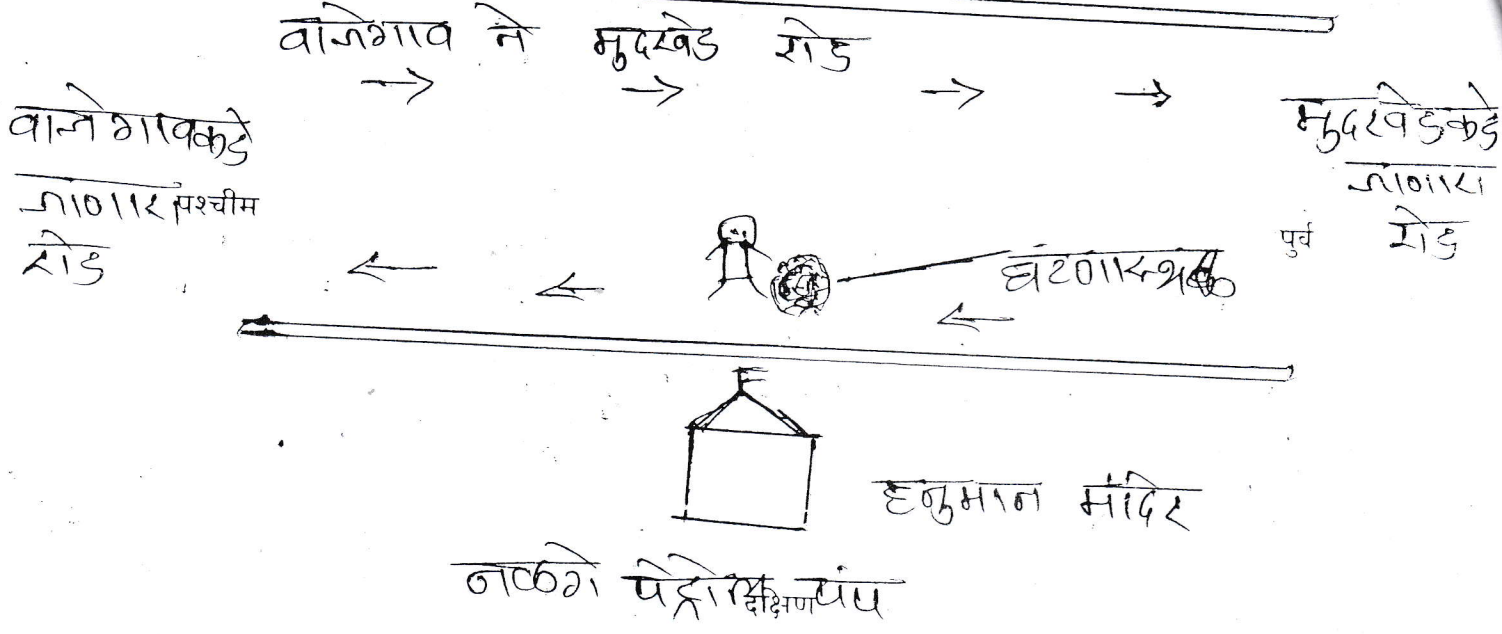 वाजेगाव ते मुदखेड रोड
वाजेगावकडे
जाणारा पश्चीम
रोड
मुदखेडकडे
जाणारा
पुर्व रोड
घटणास्थळ
हनुमान मंदिर
पेट्रोल दक्षिण पंप